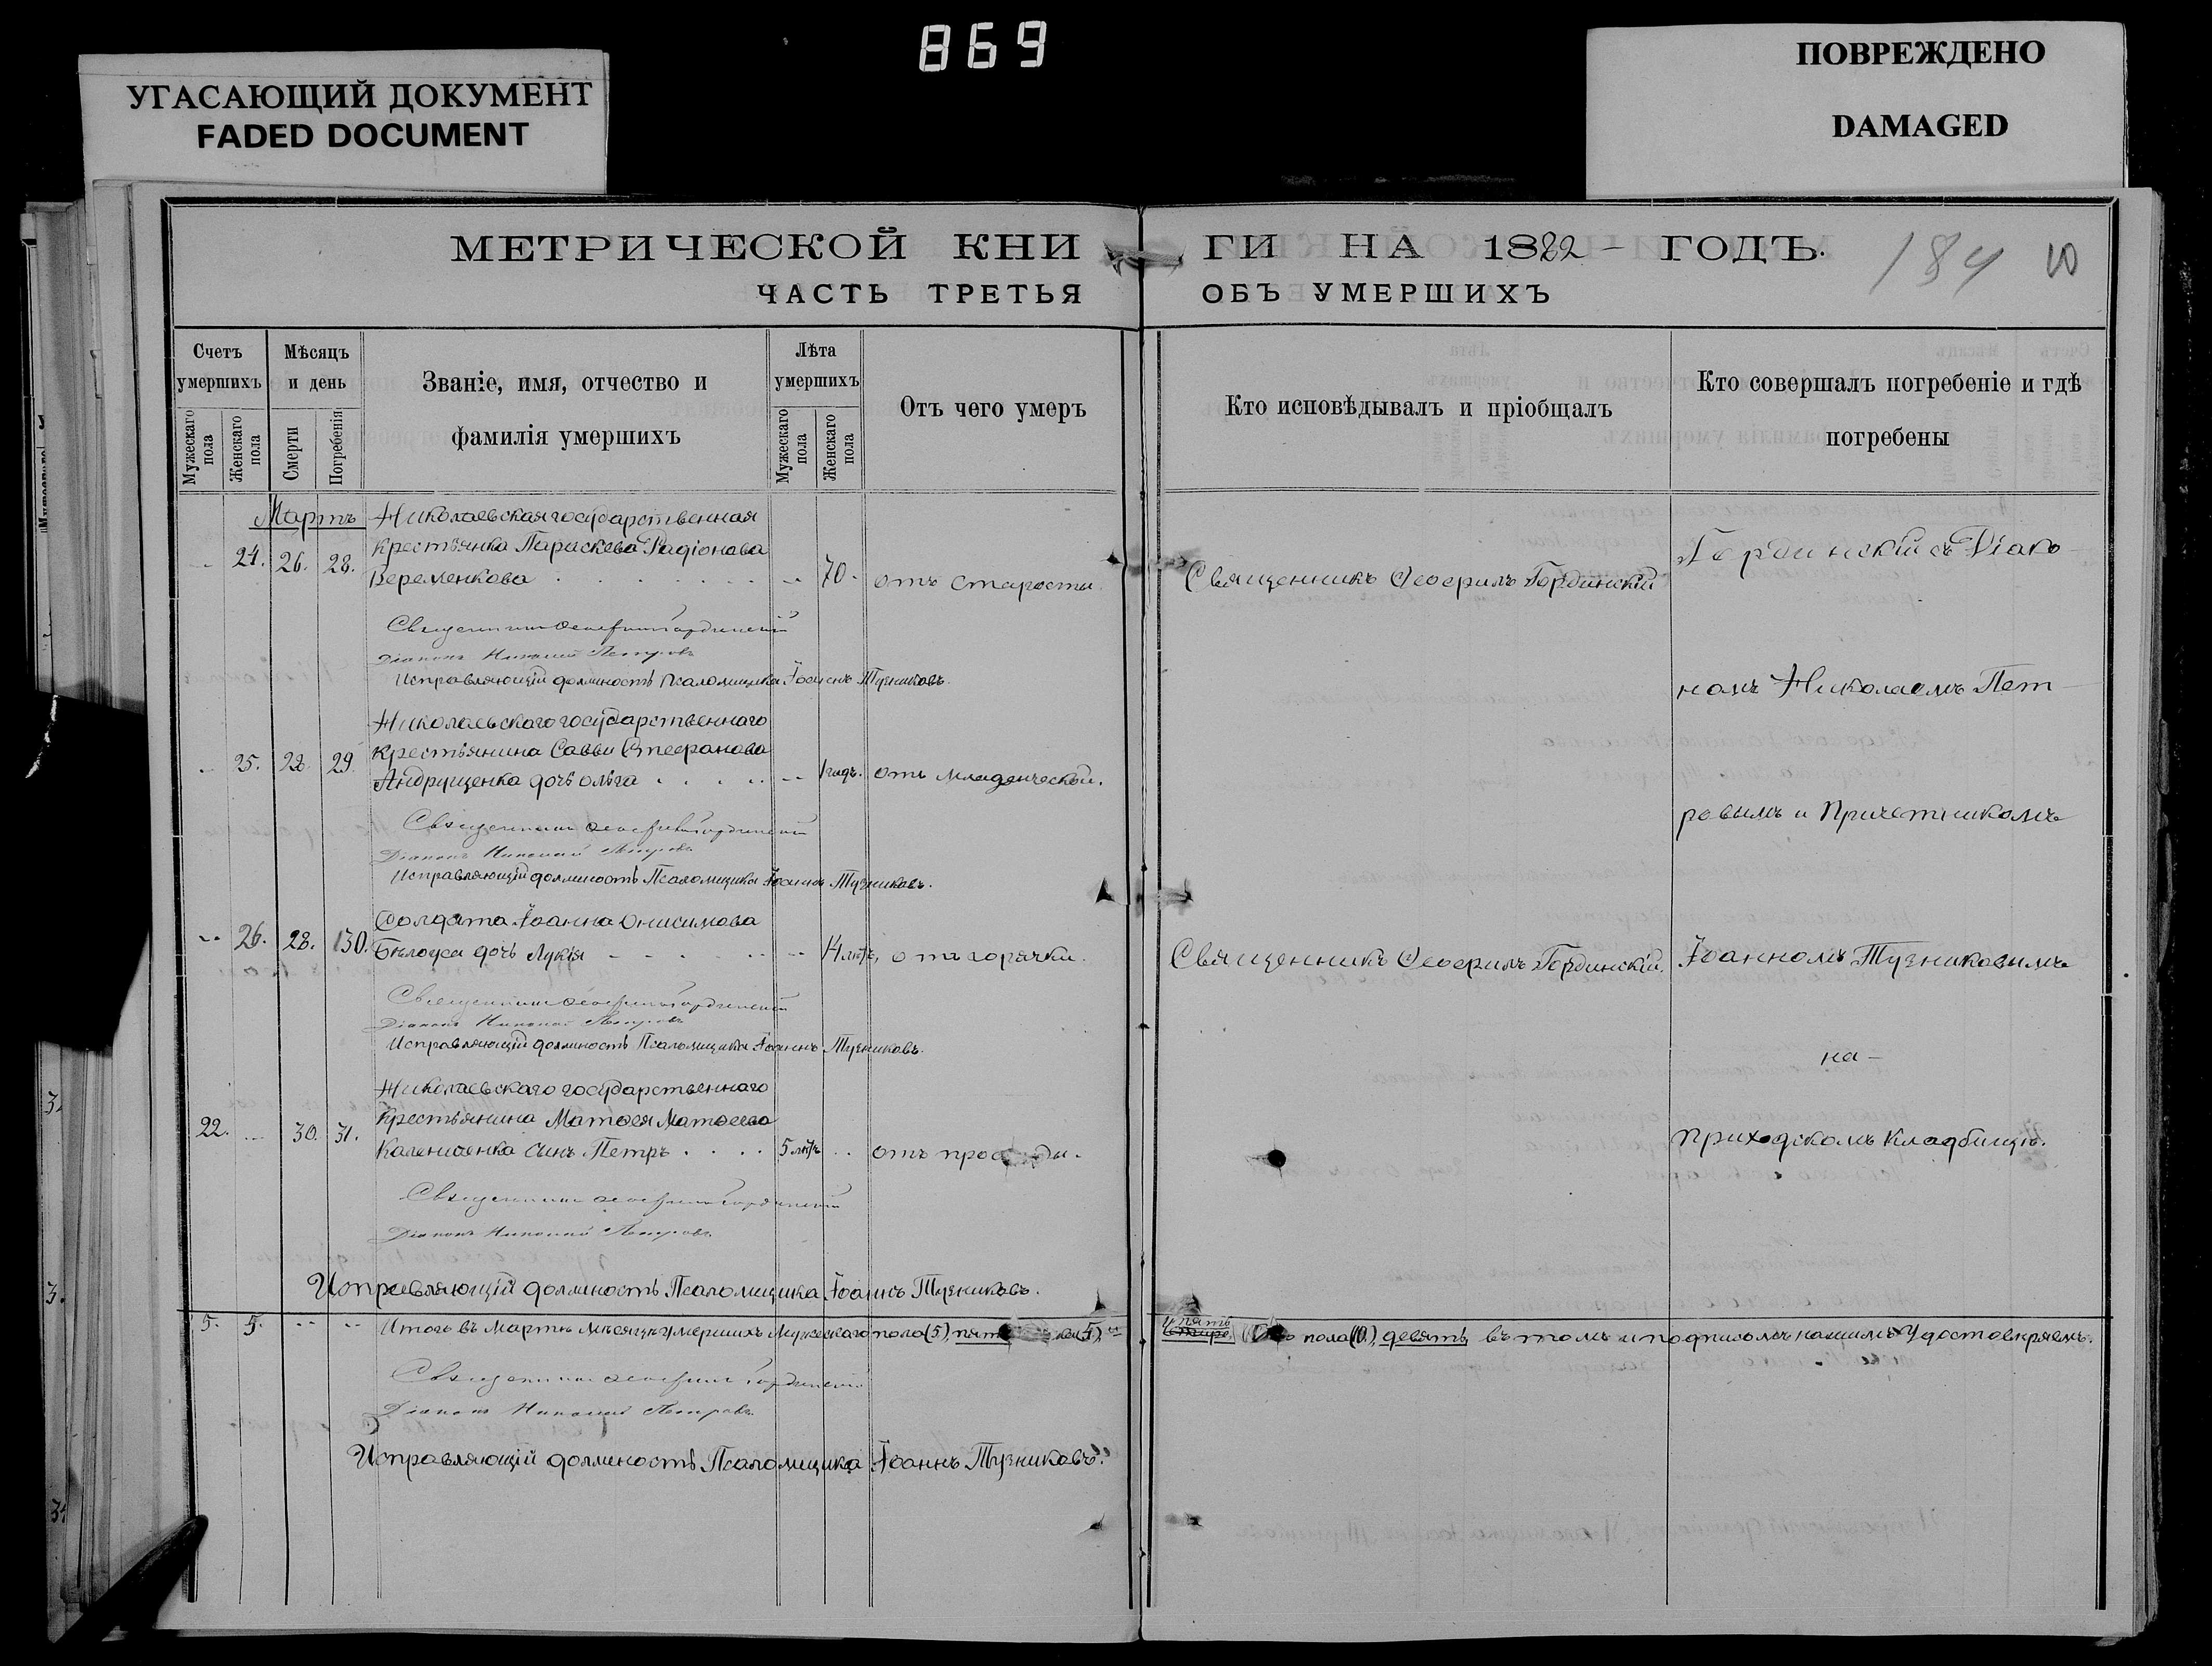 869
УГАСАЮЩИЙ ДОКУМЕНТ
FADED DOCUMENT
ПОВРЕЖДЕНО
DAMAGED
МЕТРИЧЕСКОЙ КНИ
ГИ НА 1882 ГОДЪ.
184 10
ЧАСТЬ ТРЕТЬЯ
ОБЪ УМЕРШИХЪ
Счетъ умершихъ
Мужескаго пола
Женскаго пола
Мѣсяцъ и день
Смерти
Погребенія
Званіе, имя, отчество и фамилія умершихъ
Лѣта умершихъ
Мужескаго пола
Женскаго пола
Отъ чего умеръ
Кто исповѣдывалъ и пріобщалъ
Кто совершалъ погребеніе и гдѣ погребены
Мартъ Николаевская государственная
24. 26. 28. крестьянка Параскева Радіонова
Веременкова 70. отъ старости.
Священникъ Ѳеофилъ Гординскій
Гординскій съ Діако
Священникъ Ѳеофилъ Гординскій
Діаконъ Николай Петровъ
Исправляющій должность Псаломщика Іоаннъ Тузниковъ.
номъ Николаемъ Пет
Николаевскаго государственнаго
25. 28. 29 крестьянина Саввы Стефанова
Андрущенка дочь Ольга 1 годъ. отъ младенческой.
Священникъ Ѳеофилъ Гординскій
Діаконъ Николай Петровъ
Исправляющій должность Псаломщика Іоаннъ Тузниковъ.
ровымъ и Причетникомъ
Солдата Іоанна Онисимова
26. 28. 30. Бѣлоуса дочь Лукія 14 лѣтъ, отъ горячки.
Священникъ Ѳеофилъ Гординскій.
Іоанномъ Тузниковымъ
Священникъ Ѳеофилъ Гординскій
Діаконъ Николай Петровъ
Исправляющій должность Псаломщика Іоаннъ Тузниковъ.
на
Николаевскаго государственнаго
22. 30. 31. крестьянина Матѳея Матѳеева
сынъ Петръ 5 лѣтъ отъ
приходскомъ кладбищѣ.
Священникъ Ѳеофилъ Гординскій
Діаконъ Николай Петровъ
Исправляющій должность Псаломщика Іоаннъ Тузниковъ.
5. 5. Итого въ Мартѣ мѣсяцѣ умершихъ Мужескаго пола (5),
пять
пола (10.), девять, въ томъ и подписомъ нашимъ удостовѣряемъ.
Священникъ Ѳеофилъ Гординскій
Діаконъ Николай Петровъ
Исправляющій должность Псаломщика Іоаннъ Тузниковъ.